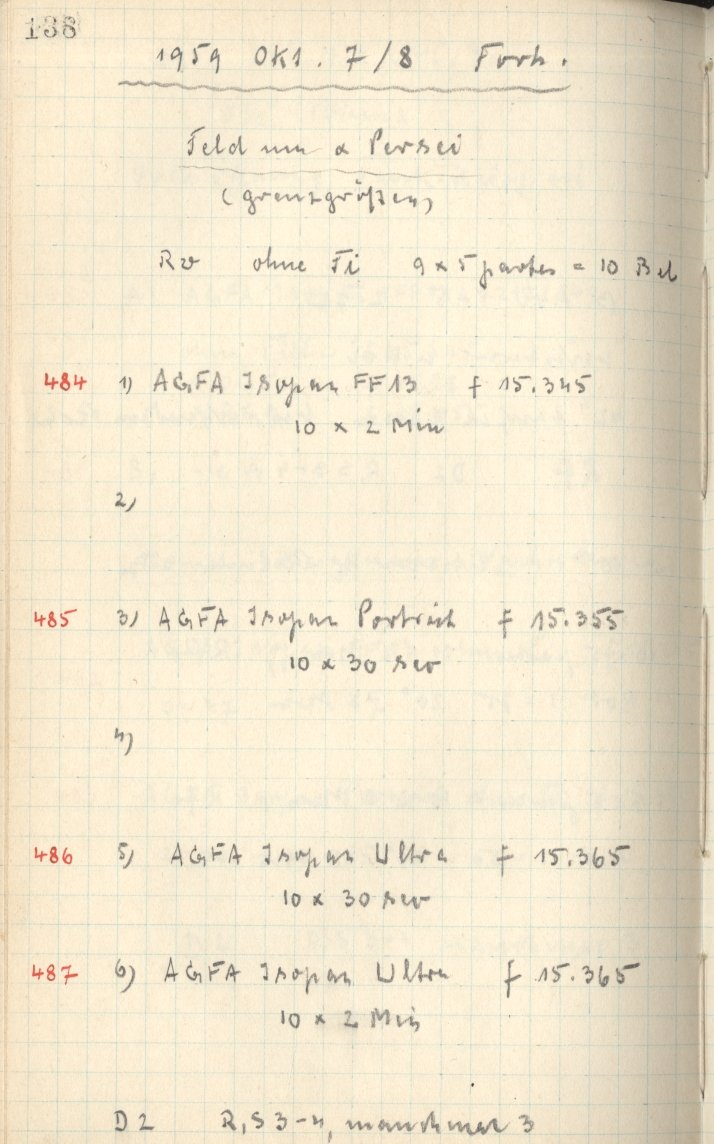 138
1959 Okt. 7/8 Forh.
Feld um α Persei
(grenzgrößen)
ohne Fi 9 x 5 partes = 10 Bel
484 1) AGFA Isopan FF13 f 15.345
10 x 2 Min
2)
485 3) AGFA Isopan Portrait f 15.355
10 x 30 sec
4)
486 5) AGFA Isopan Ultra f 15.365
10 x 30 sec
487 6) AGFA Isopan Ultra f 15.365
10 x 2 Min
D2 R, S 3-4, manchmal 3